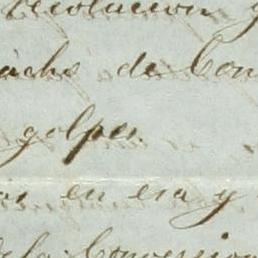 revolucion y
acho de Con
golpes
as en esa y
de la Convencion